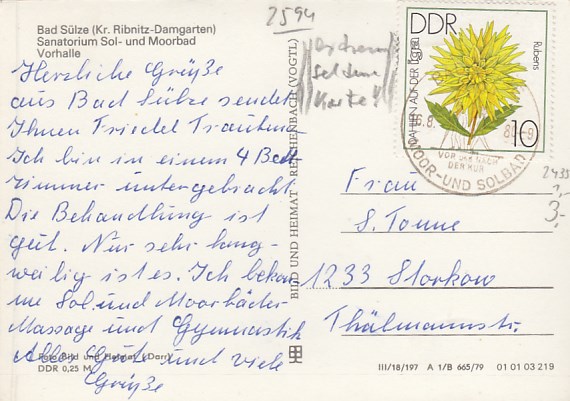 Bad Sülze (Kr. Ribnitz-Damgarten)
Sanatorium Sol- und Moorbad
Vorhalle
Herzliche Grüße
aus Bad Sülze sendet
Ihnen Friedel Trautmann
Ich bin in einem 4 Bett
zimmer untergebracht
Die Behandlung ist
gut. Nur sehr lang-
weilig ist es. Ich bekom-
me Sol. und Moorbäder
Massage und Gymnastik
Alles Gute und viele
Grüße
Foto Bild und Heimat (Darr)
DDR 0,25 M
BILD UND HEIMAT · REICHENBACH (VOGTL)
2594
seltene
Karte!
DDR
DAHLIEN AUF DER
Rubens
10
16.8.
VOR UND NACH
DER KUR
MOOR-UND SOLBAD
2435
1,-
3,-
Frau
S. Tonne
1233 Storkow
Thälmannstr.
III/18/197 A 1/B 665/79 01 01 03 219